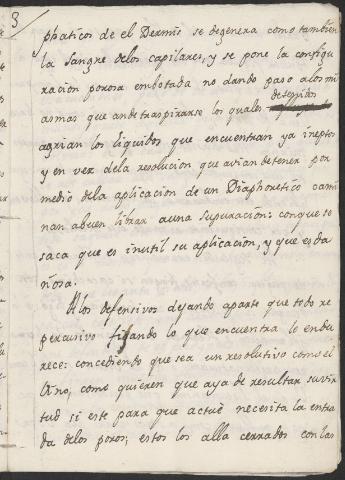 3
phaticos de el Dermis se degenera como tambien
la sangre delos capilares, y se pone la configu
racion porosa embotada no dando paso alos mi
detenidos
asmas que ande traspirarse los quales
agrian los liquidos que encuentran ya ineptos
y en vez dela resolucion que avian detener por
medio dela aplicacion de un Diaphoretico cami
nan abuen librar auna supuracion: conque se
saca que es inutil su aplicacion, y que es da
ñosa.
Alos defensivos dejando aparte que todo re
percusivo fijando lo que encuentra lo endu
rece: concediendo que sea un resolutivo como el
Vino, como quieren que aya de resultar su vir
tud si este para que actuè necesita la entra
da delos poros; estos los alla cerrados con las